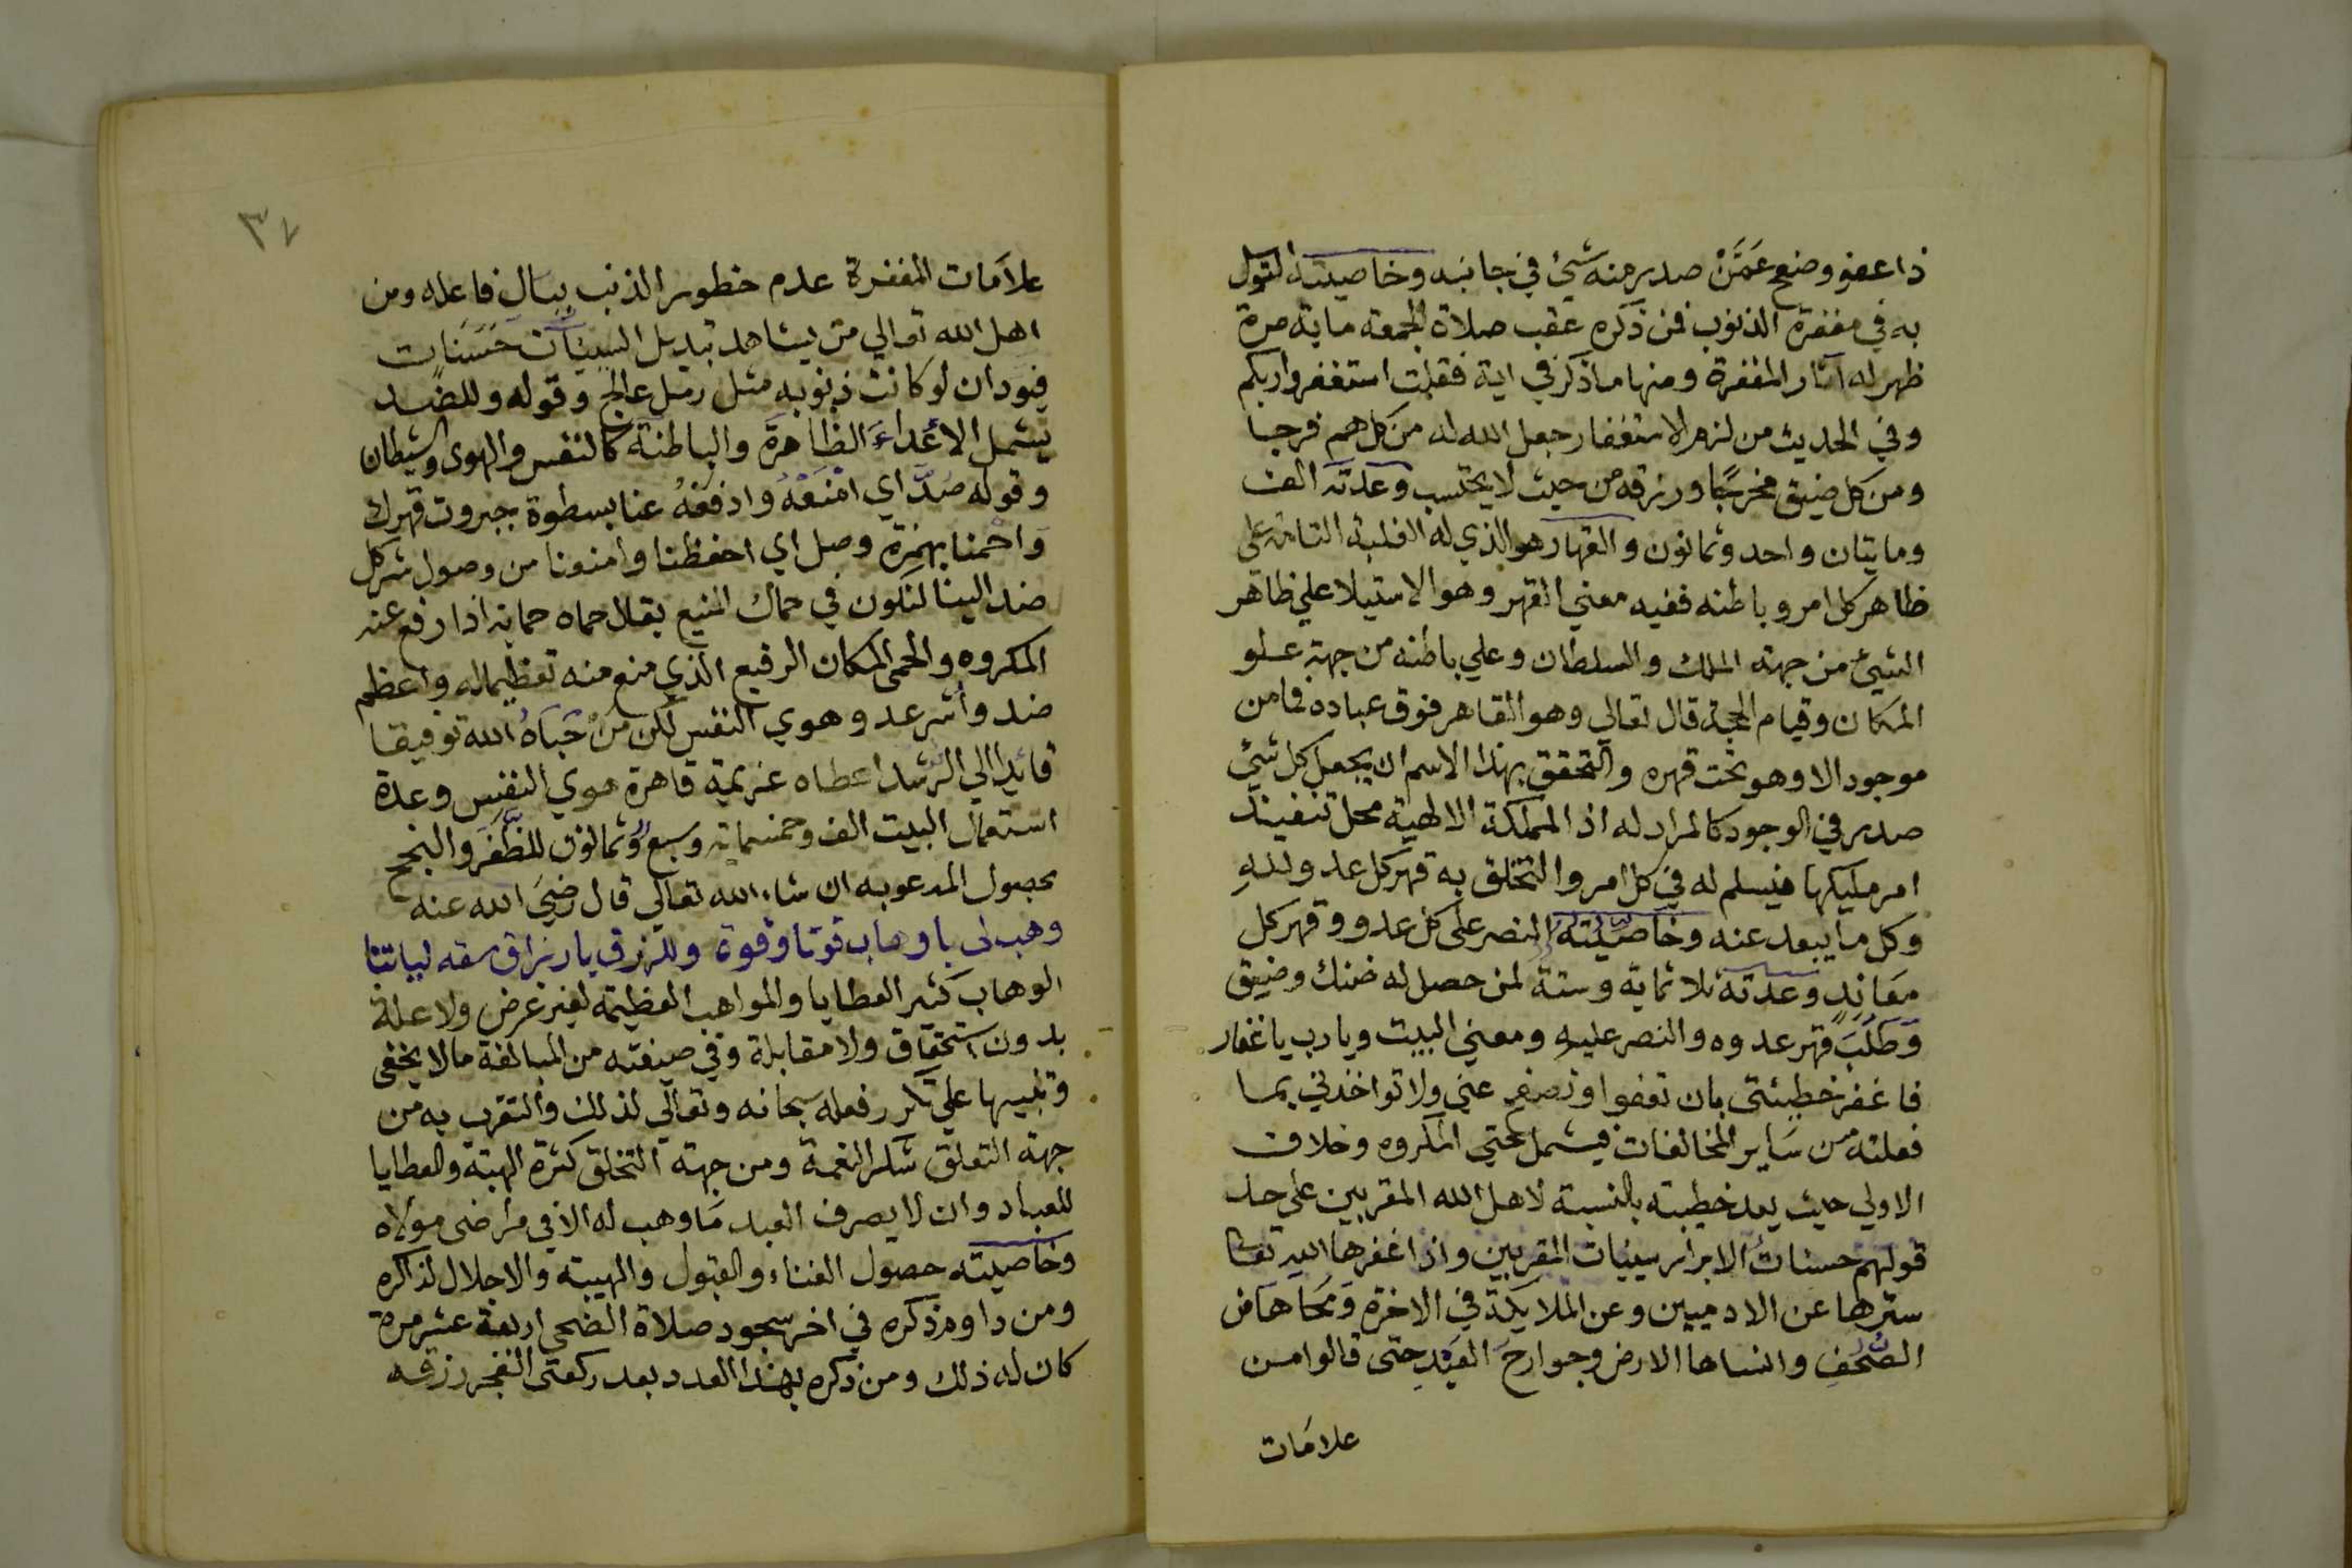 ذا عفو وصفح عَمَّنْ صدر منه شئ في جانبه وخاصيته التوسل
به في مغفرة الذنوب فمن ذكره عقب صلاة الجمعة ماية مرة
ظهر له آثار المغفرة ومنها ما ذكر في اية فقلت استغفروا ربكم
وفي الحديث من لزم الاستغفار جعل الله له من كل هم فرجا
ومن كل ضيق مخرجًا ورزقه من حيث لا يحتسب وعدته الف
ومايتان واحد وثمانون والقهار هو الذي له الغلبة التامة علي
ظاهر كل امر وباطنه ففيه معني القهر وهو الاستيلا علي ظاهر
الشيئ من جهة الملك والسلطان وعلي باطنه من جهة علو
المكان وقيام الحجة قال تعالي وهو القاهر فوق عباده فما من
موجود الا وهو تحت قهره والتحقق بهذا الاسم ان يجعل كل شئ
صدر في الوجود كالمراد له اذ المملكة الالهية محل تنفيذ
امر مليكها فيسلم له في كل امر والتخلق به قهر كل عدو لله
وكل ما يبعد عنه وخاصيته النصر على كل عدو وقهر كل
معاندٍ وعدته ثلاثماية وستة لمن حصل له ضنك وضيق
وَطَلَبَ قهر عدوه والنصر عليه ومعني البيت ويا رب يا غفار
فاغفر خطيئتي بان تعفوا وتصفح عني ولا تواخذني بما
فعلته من ساير المخالفات فيشمل حتي المكروه وخلاف
الاولي حيث يعد خطيته بالنسبة لاهل الله المقربين علي حد
قولهم حسنات الابرار سيئات المقربين واذا غفرها الله تعا
سترها عن الادميين وعن الملايكة في الاخرة وَمَحَاها من
الصُّحُفِ وانساها الارض وجوارح العَبْدِ حتى قالوا من
علامات
٣٧
علامَات المغفرة عدم خطور الذنب ببال فاعله ومن
اهل الله تعالي من يشاهد تبديل السيئات حَسَنَات
فيود ان لو كانت ذنوبه مثل رمل عالج وقوله وللضد
يشمل الأعداءَ الظاهرة والباطنة كالنفس والهوى والشيطان
وقوله صُدّ اي امْنَعْهُ وادفعْهُ عنا بسطوة جبروت قهرك
وَاحْمنا بهمزة وصل اي احفظنا وامنعنا من وصول شر كل
ضد الينا لنكون في حماك المنيع يقال حماه حماية اذا رفع عنه
المكروه والحمى المكان الرفيع الذي منع منه تعظيما له واعظم
ضد وأشر عدو هوي النفس لكن مَنْ حَبَاهُ الله توفيقا
قايدا الي الرشد اعطاه عزيمة قاهرة هوي النفس وعدة
استعمال البيت الف وخمسماية وسبعٌ وثمانون للظَّفَرِ والنجح
بحصول المدعو به ان شاء الله تعالي قال رضيَ الله عنه
وهب لى يا وهاب قوتا وقوة وللرزق يا رزاق سقه لبابنا
الوهاب كثير العطايا والمواهب العظيمة لغير غرض ولا علة
بدون استحقاق ولا مقابلة وفي صيغته من المبالغة ما لا يخفى
وتنبيها علي تكرر فعله سبحانه وتعالي لذلك والتقرب به من
جهة التعلق شكر النعمة ومن جهة التخلق كثرة الهبة والعطايا
للعباد وان لا يصرف العبد مَا وهب له الا في مراضى مولاه
وخاصيته حصول الغناء والقبول والهيبة والاجلال لذاكره
ومن داوم ذكره في اخر سجود صلاة الضحى اربعة عشر مرة
كان له ذلك ومن ذكره بهذا العدد بعد ركعتى الفجر رزقه